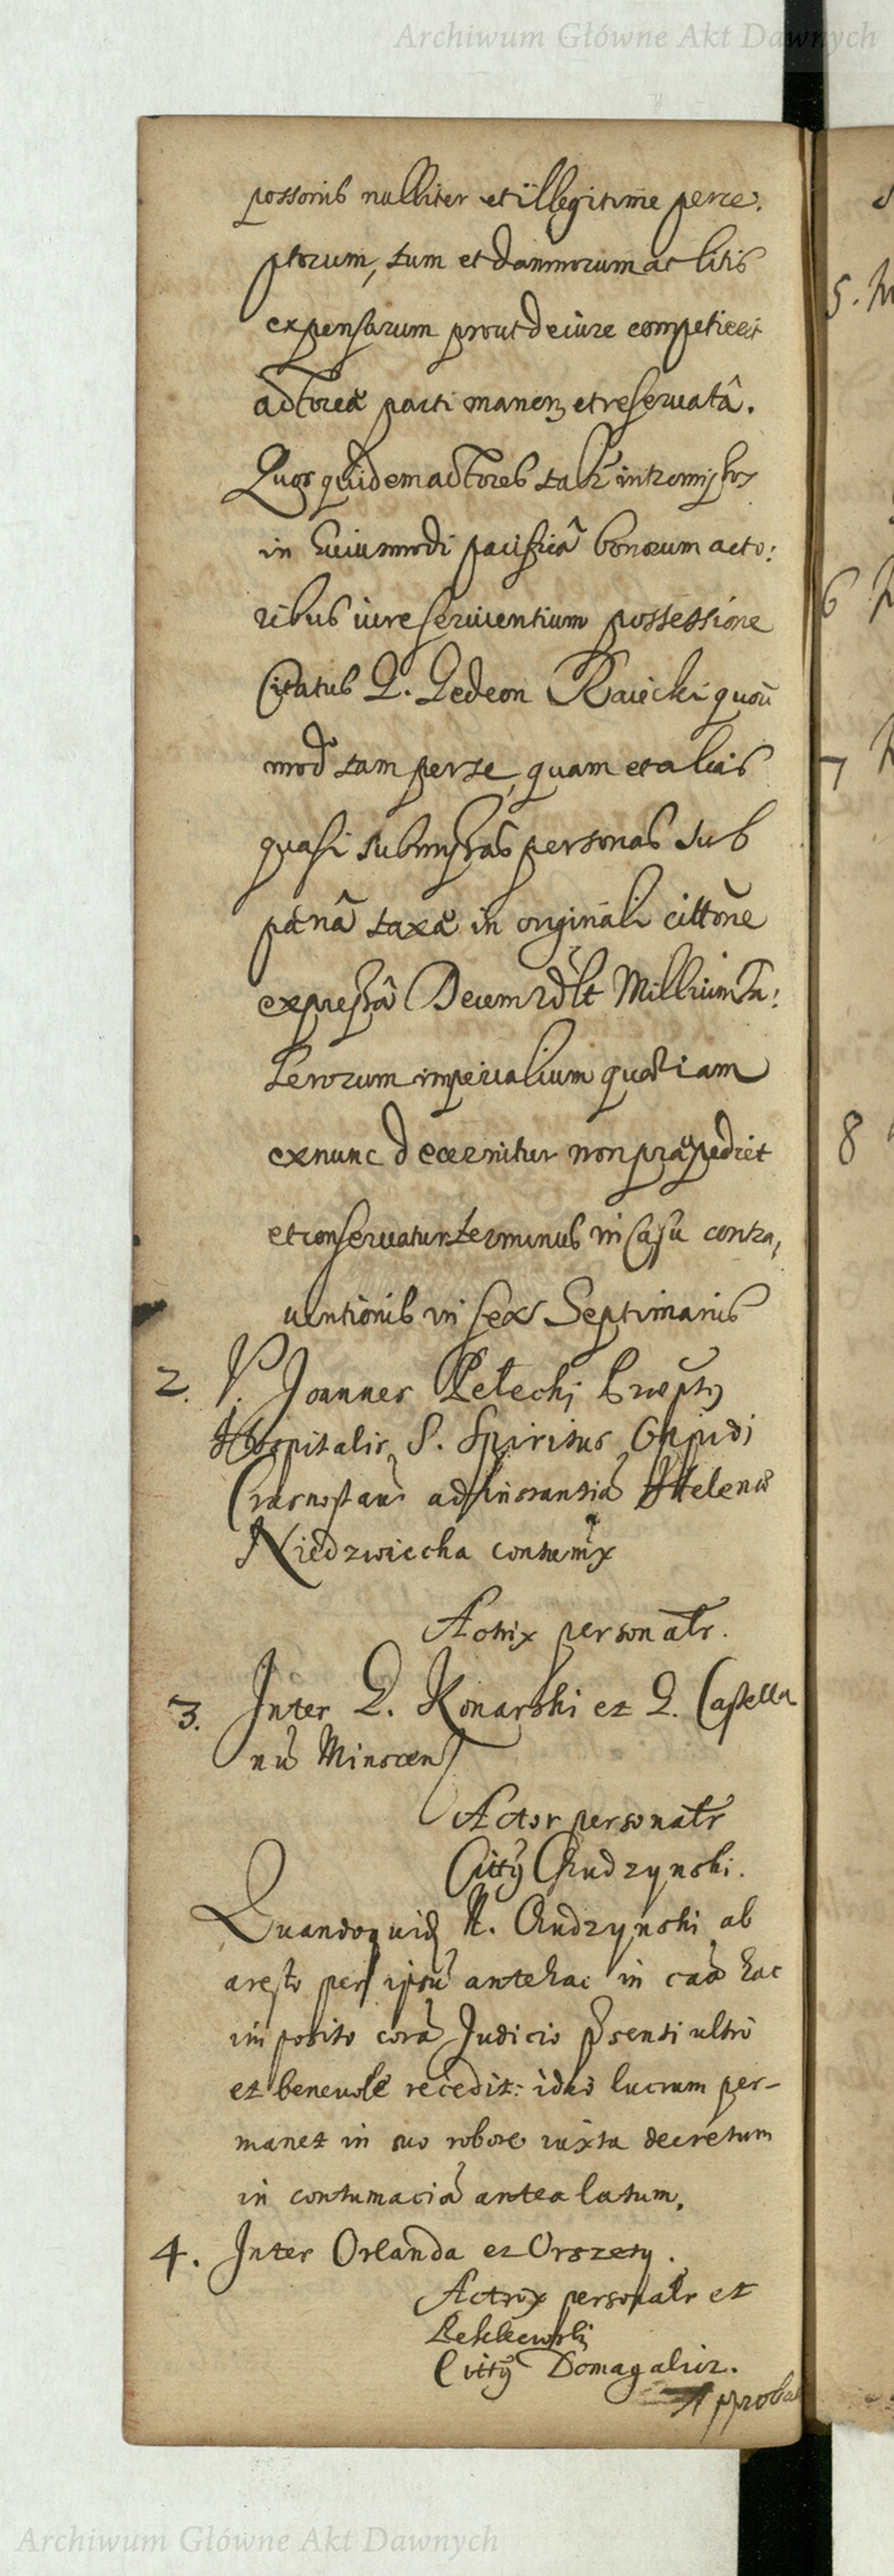 Archiwum Główne Akt Dawnych
possoris nulliter et illegitime perce.
ptorum, tum et damnorum ac litis
expensarum prout de iure competierit
actoreae parti manen et reservatâ.
Quos quidem actores intromissos
in huiusmodi pacificâ bonorum acto:
ribus iure servientium possessione
Citatus G. Gedeon Raiecki quou
mod tam per se, quam et alias
quasi submissas personas sub
paenâ taxa in originali cittone
expressâ Decem Millium Ta:
lerorum imperialium quae iam
ex nunc decernitur non praepediet
et conservatur terminus in Casu contra,
uentionis in sex Septimanis
2. V. Joannes Petechi
Hospitalis S. Spiritus Oppidi
Crasnostavi ad instantiã Helenae
Niedzwiecka contumx
Actrix personatr.
3. Inter G. Konarski et G. Castella
nũ Minscen
Actor personatr
Citty Chudzynski.
Quandoquid N. Chudzynski ab
aresto per ipsũ antehac in caã hac
imposito corã Judicio psenti ultrò
et benevolè recedit: ideò lucrum per-
manet in suo robore iuxta decretum
in contumaciã antea latum.
4. Inter Orlanda et Orszety.
Actrix personatr et
Citty Domagalicz.
Approba
5.
6
7
8
Archiwum Główne Akt Dawnych